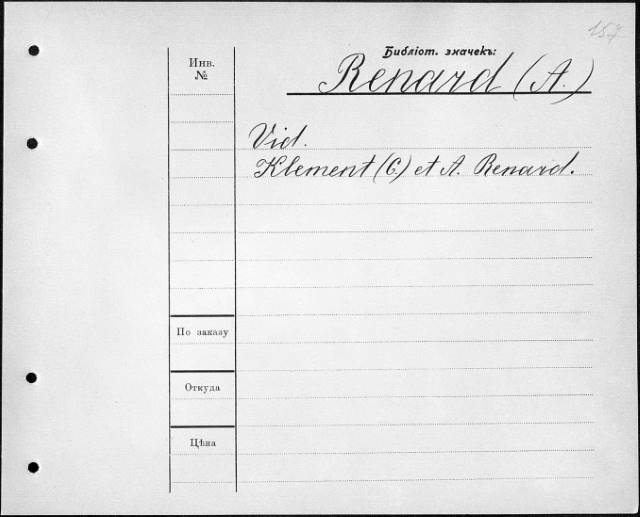 157
Библіот. значекъ:
Инв.
№
Renard (A.)
Vid.
Klement (C.) et A. Renard.
По заказу
Откуда
Цѣна